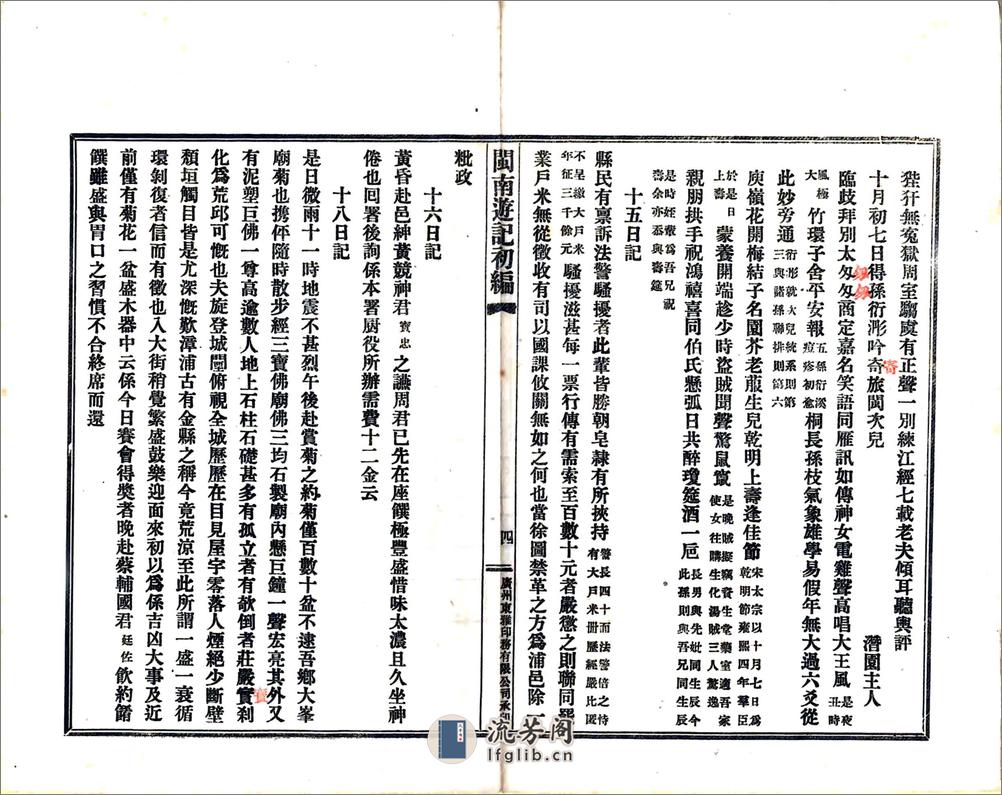 狴犴無冤獄周室騶虞有正聲一別練江經七載老夫傾耳聽輿評
十月初七日得孫衍浵吟寄旅閩次兒　潛園主人
寄
臨歧拜別太匆匆商定嘉名笑語同雁訊如傳神女電雞聲高唱大王風是夜丑時
匆匆
風極大　竹環子舍平安報五孫衍溪痘疹初愈　桐長孫枝氣象雄學易假年無大過六爻從
此妙旁通衍浵就次兒統系則第三與諸孫聯排則第六
庾嶺花開梅結子名園芥老龍生兒乾明上壽逢佳節宋太宗以十月七日為乾明節雍熙四年羣臣
於是日上壽　蒙養開端趁少時盜賊聞聲驚鼠竄是晚賊擬竊資生堂藥室適吾家使女往購生化湯賊三人驚逸
親朋拱手祝鴻禧喜同伯氏懸弧日共醉瓊筵酒一巵長男與先妣同生辰今此孫則與吾兄同生辰
是時姪輩為吾兄祝壽余亦忝與壽筵
十五日記
縣民有禀訴法警騷擾者此輩皆勝朝皂隷有所挾持警長四十而法警倍之恃有大戶米冊歷經嚴比匿
不呈繳大戶米年征三千餘元　騷擾滋甚每一票行傳有需索至百數十元者嚴懲之則聯同罷
業戶米無從徵收有司以國課攸關無如之何也當徐圖禁革之方為浦邑除一
閩南遊記初編
四
廣州東雅印務有限公司承印
粃政
十六日記
黃昏赴邑紳黃競神君寶忠之讌周君已先在座饌極豐盛惜味太濃且久坐神
倦也囘署後詢係本署厨役所辦需費十二金云
十八日記
是日微雨十一時地震不甚烈午後赴賞菊之約菊僅百數十盆不逮吾鄉大峯
廟菊也携伻隨時散步經三寶佛廟佛三均石製廟內懸巨鐘一聲宏亮其外又
有泥塑巨佛一尊高逾數人地上石柱石礎甚多有孤立者有欹倒者莊嚴實刹
寶
化為荒邱可慨也夫旋登城闉俯視全城歷歷在目見屋宇零落人煙絕少斷壁
頹垣觸目皆是尤深慨歎漳浦古有金縣之稱今竟荒涼至此所謂一盛一衰循
環剝復者信而有徵也入大街稍覺繁盛鼓樂迎面來初以為係吉凶大事及近
前僅有菊花一盆盛木器中云係今日賽會得獎者晚赴蔡輔國君廷佐飲約餚
饌雖盛與胃口之習慣不合終席而還
流芳阁
lfglib.cn